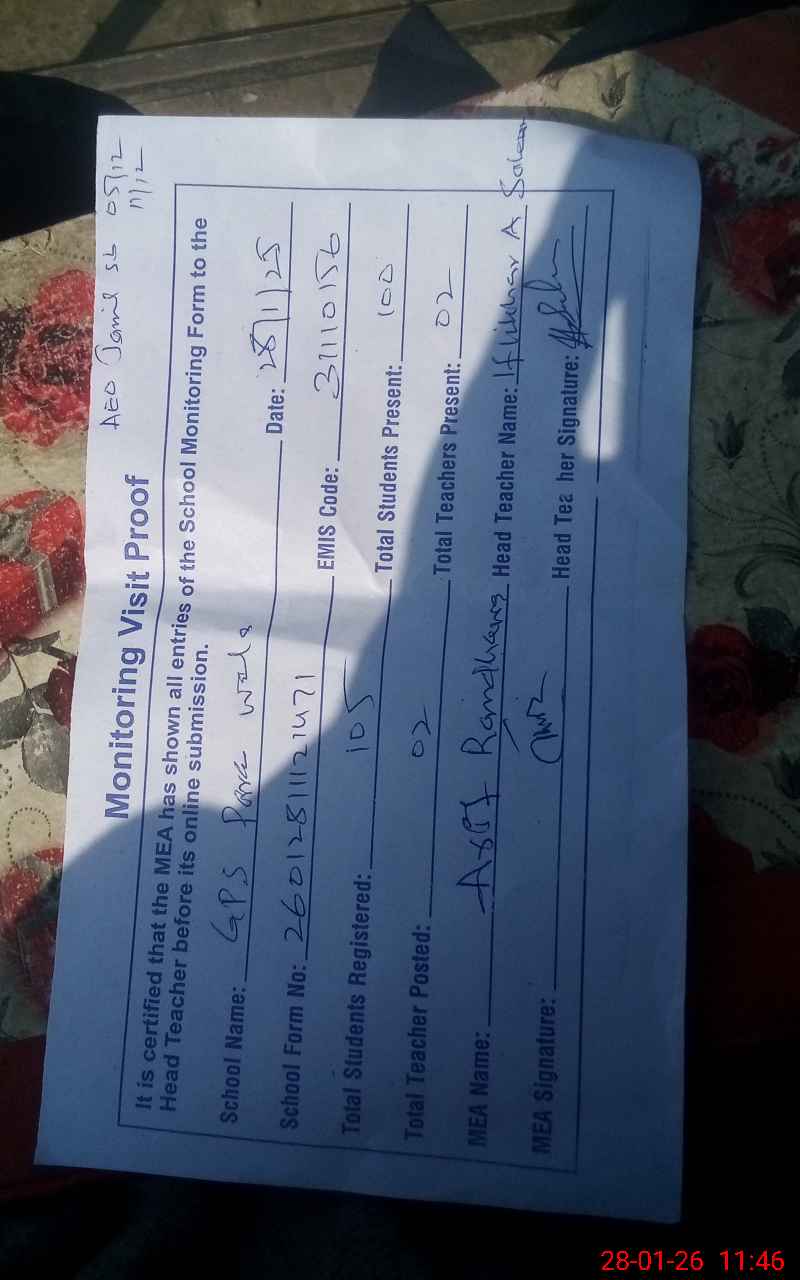 AEO Jamil sb 05/12
11/12
Monitoring Visit Proof
It is certified that the MEA has shown all entries of the School Monitoring Form to the
Head Teacher before its online submission.
School Name: GPS Parke wala Date: 28/1/25
School Form No: 260128111121471 EMIS Code: 31110156
Total Students Registered: 105 Total Students Present: 100
Total Teacher Posted: 02 Total Teachers Present: 02
MEA Name: Asif Randhawa Head Teacher Name: Iftikhar A Saleem
MEA Signature: Head Tea her Signature:
28-01-26 11:46